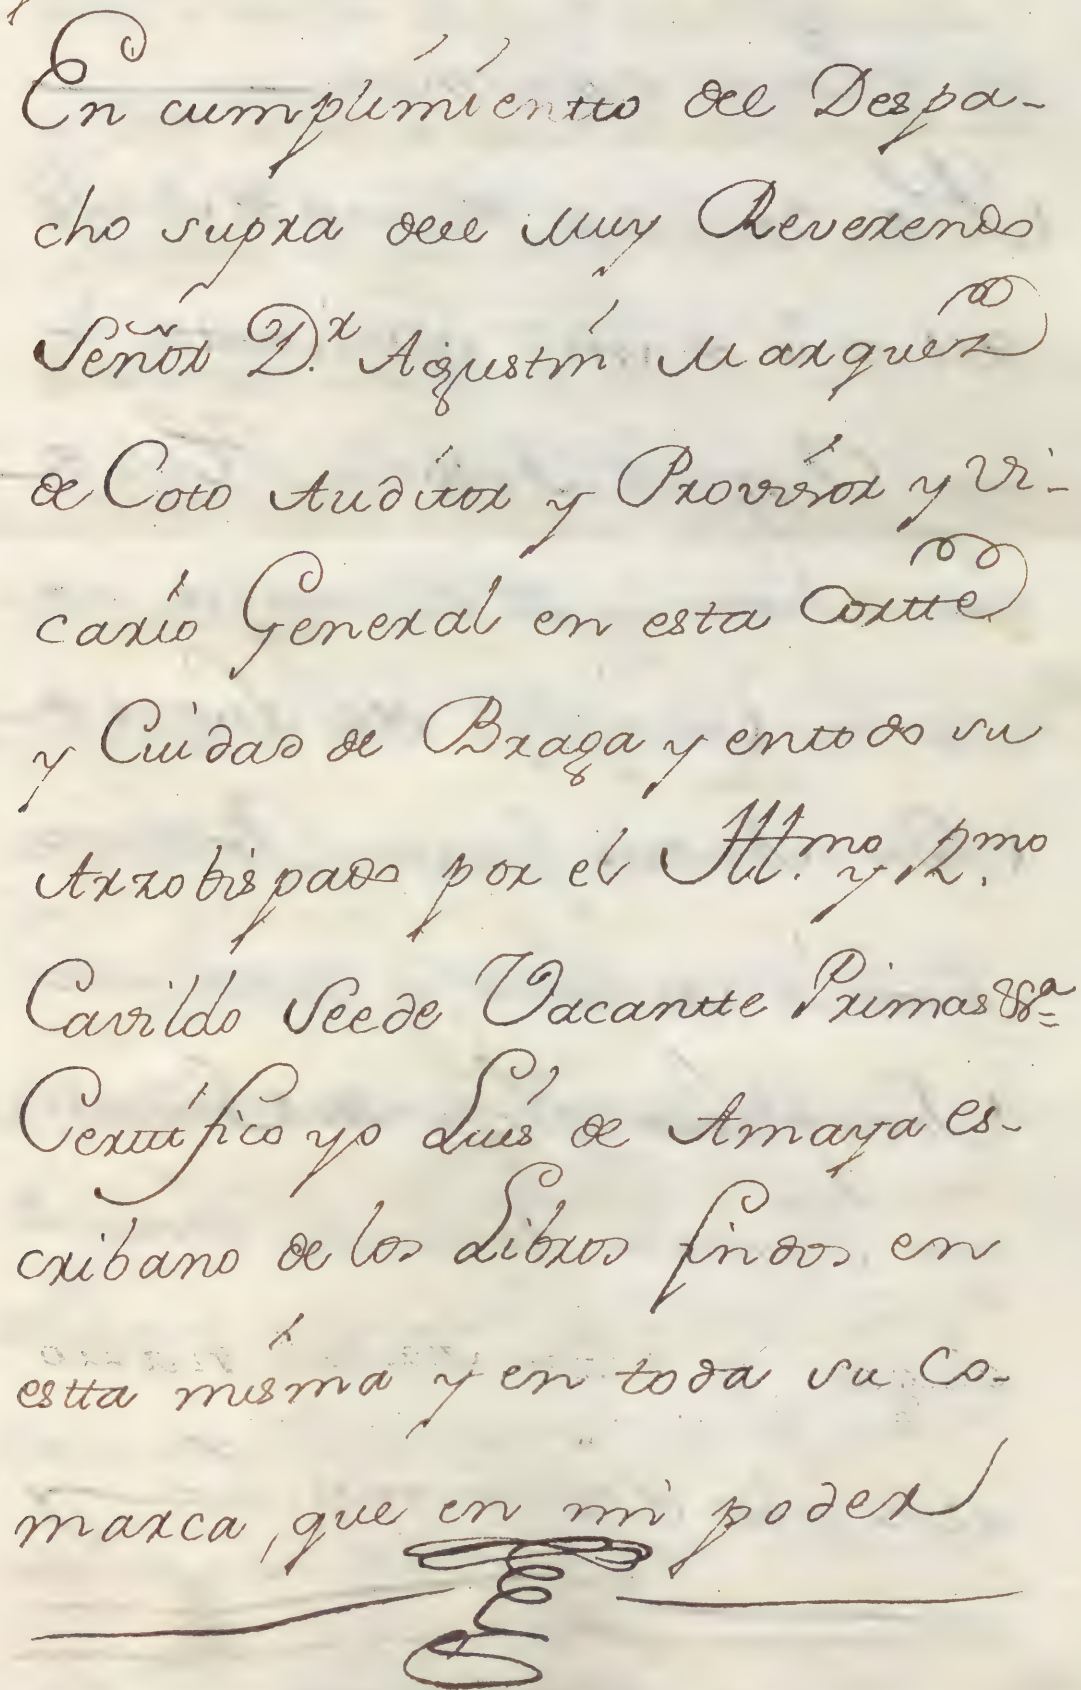 En cumplimientto del Despa-
cho supra dell Muy Reverendo
Señor D.r Agustín Marquez
de Coto Auditor y Provisor y Vi-
cario General en esta Cortte
y Cuidad de Braga y entodo su
Arzobispado por el Ill.mo y R.mo
Cavildo Seede Vacantte Primas
Certtifico yo Luis de Amaya es-
cribano de los Libros findos en
estta misma y en toda su Co-
marca, que en mi poder